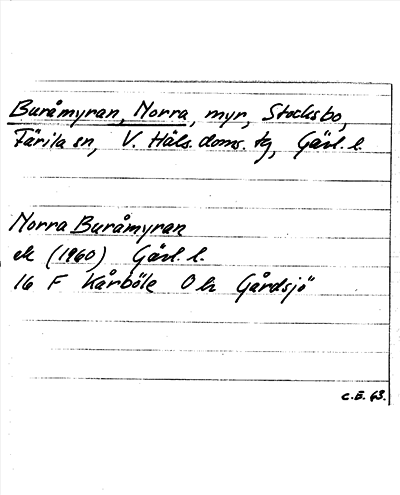 Buråmyran, Norra, myr, Stocksbo,
Färila sn, V. Häls. doms. tg, Gävl. l.
Norra Buråmyran
ek (1960) Gävl. l.
16 F Kårböle O h Gårdsjö
C.E. 63.